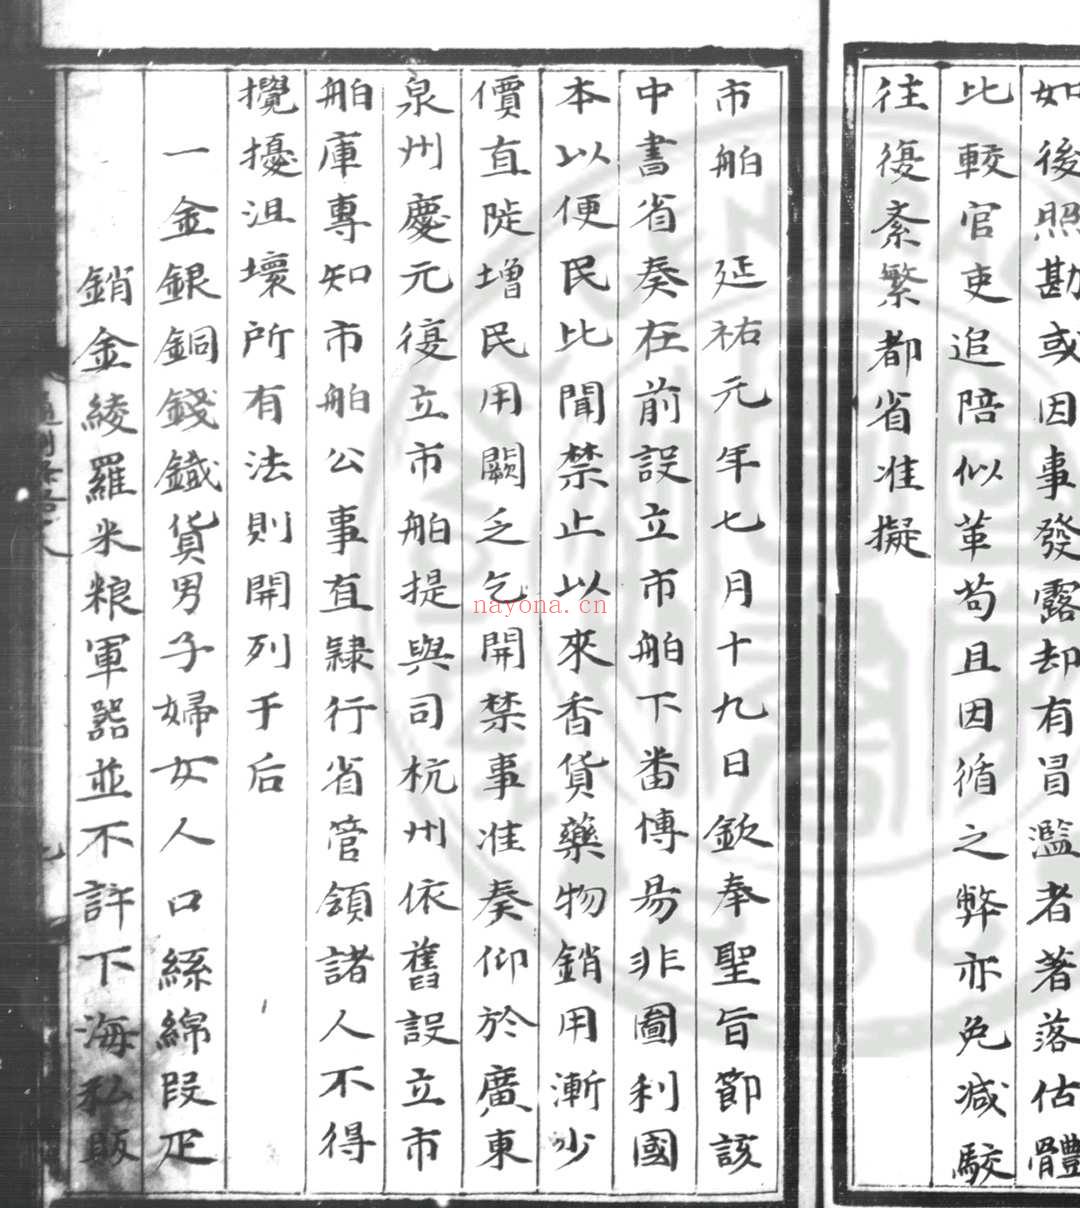 如後照勘或因事發露却有冒濫者著落估體
比較官吏追陪似革苟且因循之弊亦免减駮
往復紊繁都省准擬
市舶 延祐元年七月十九日欽奉聖旨節該
中書省奏在前設立市舶下番博易非圖利國
本以便民比聞禁止以來香貨藥物銷用漸少
價直陡增民用闕乏乞開禁事准奏仰於廣東
泉州慶元復立市舶提與司杭州依舊設立市
舶庫專知市舶公事直隸行省管領諸人不得
攪擾沮壞所有法則開列于后
一金銀銅錢鐵貨男子婦女人口絲綿段疋
銷金綾羅米粮軍器並不許下海私販
nayona.cn